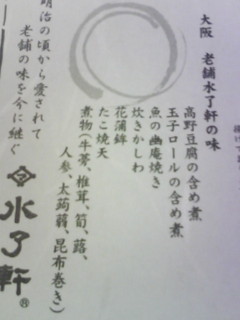 大阪 老舗水了軒の味
高野豆腐の含め煮
玉子ロールの含め煮
魚の幽庵焼き
炊きかしわ
花蒲鉾
たこ焼天
煮物(牛蒡、椎茸、筍、蕗、
人参、太蒟蒻、昆布巻き)
明治の頃から愛されて
老舗の味を今に継ぐ
水了軒®